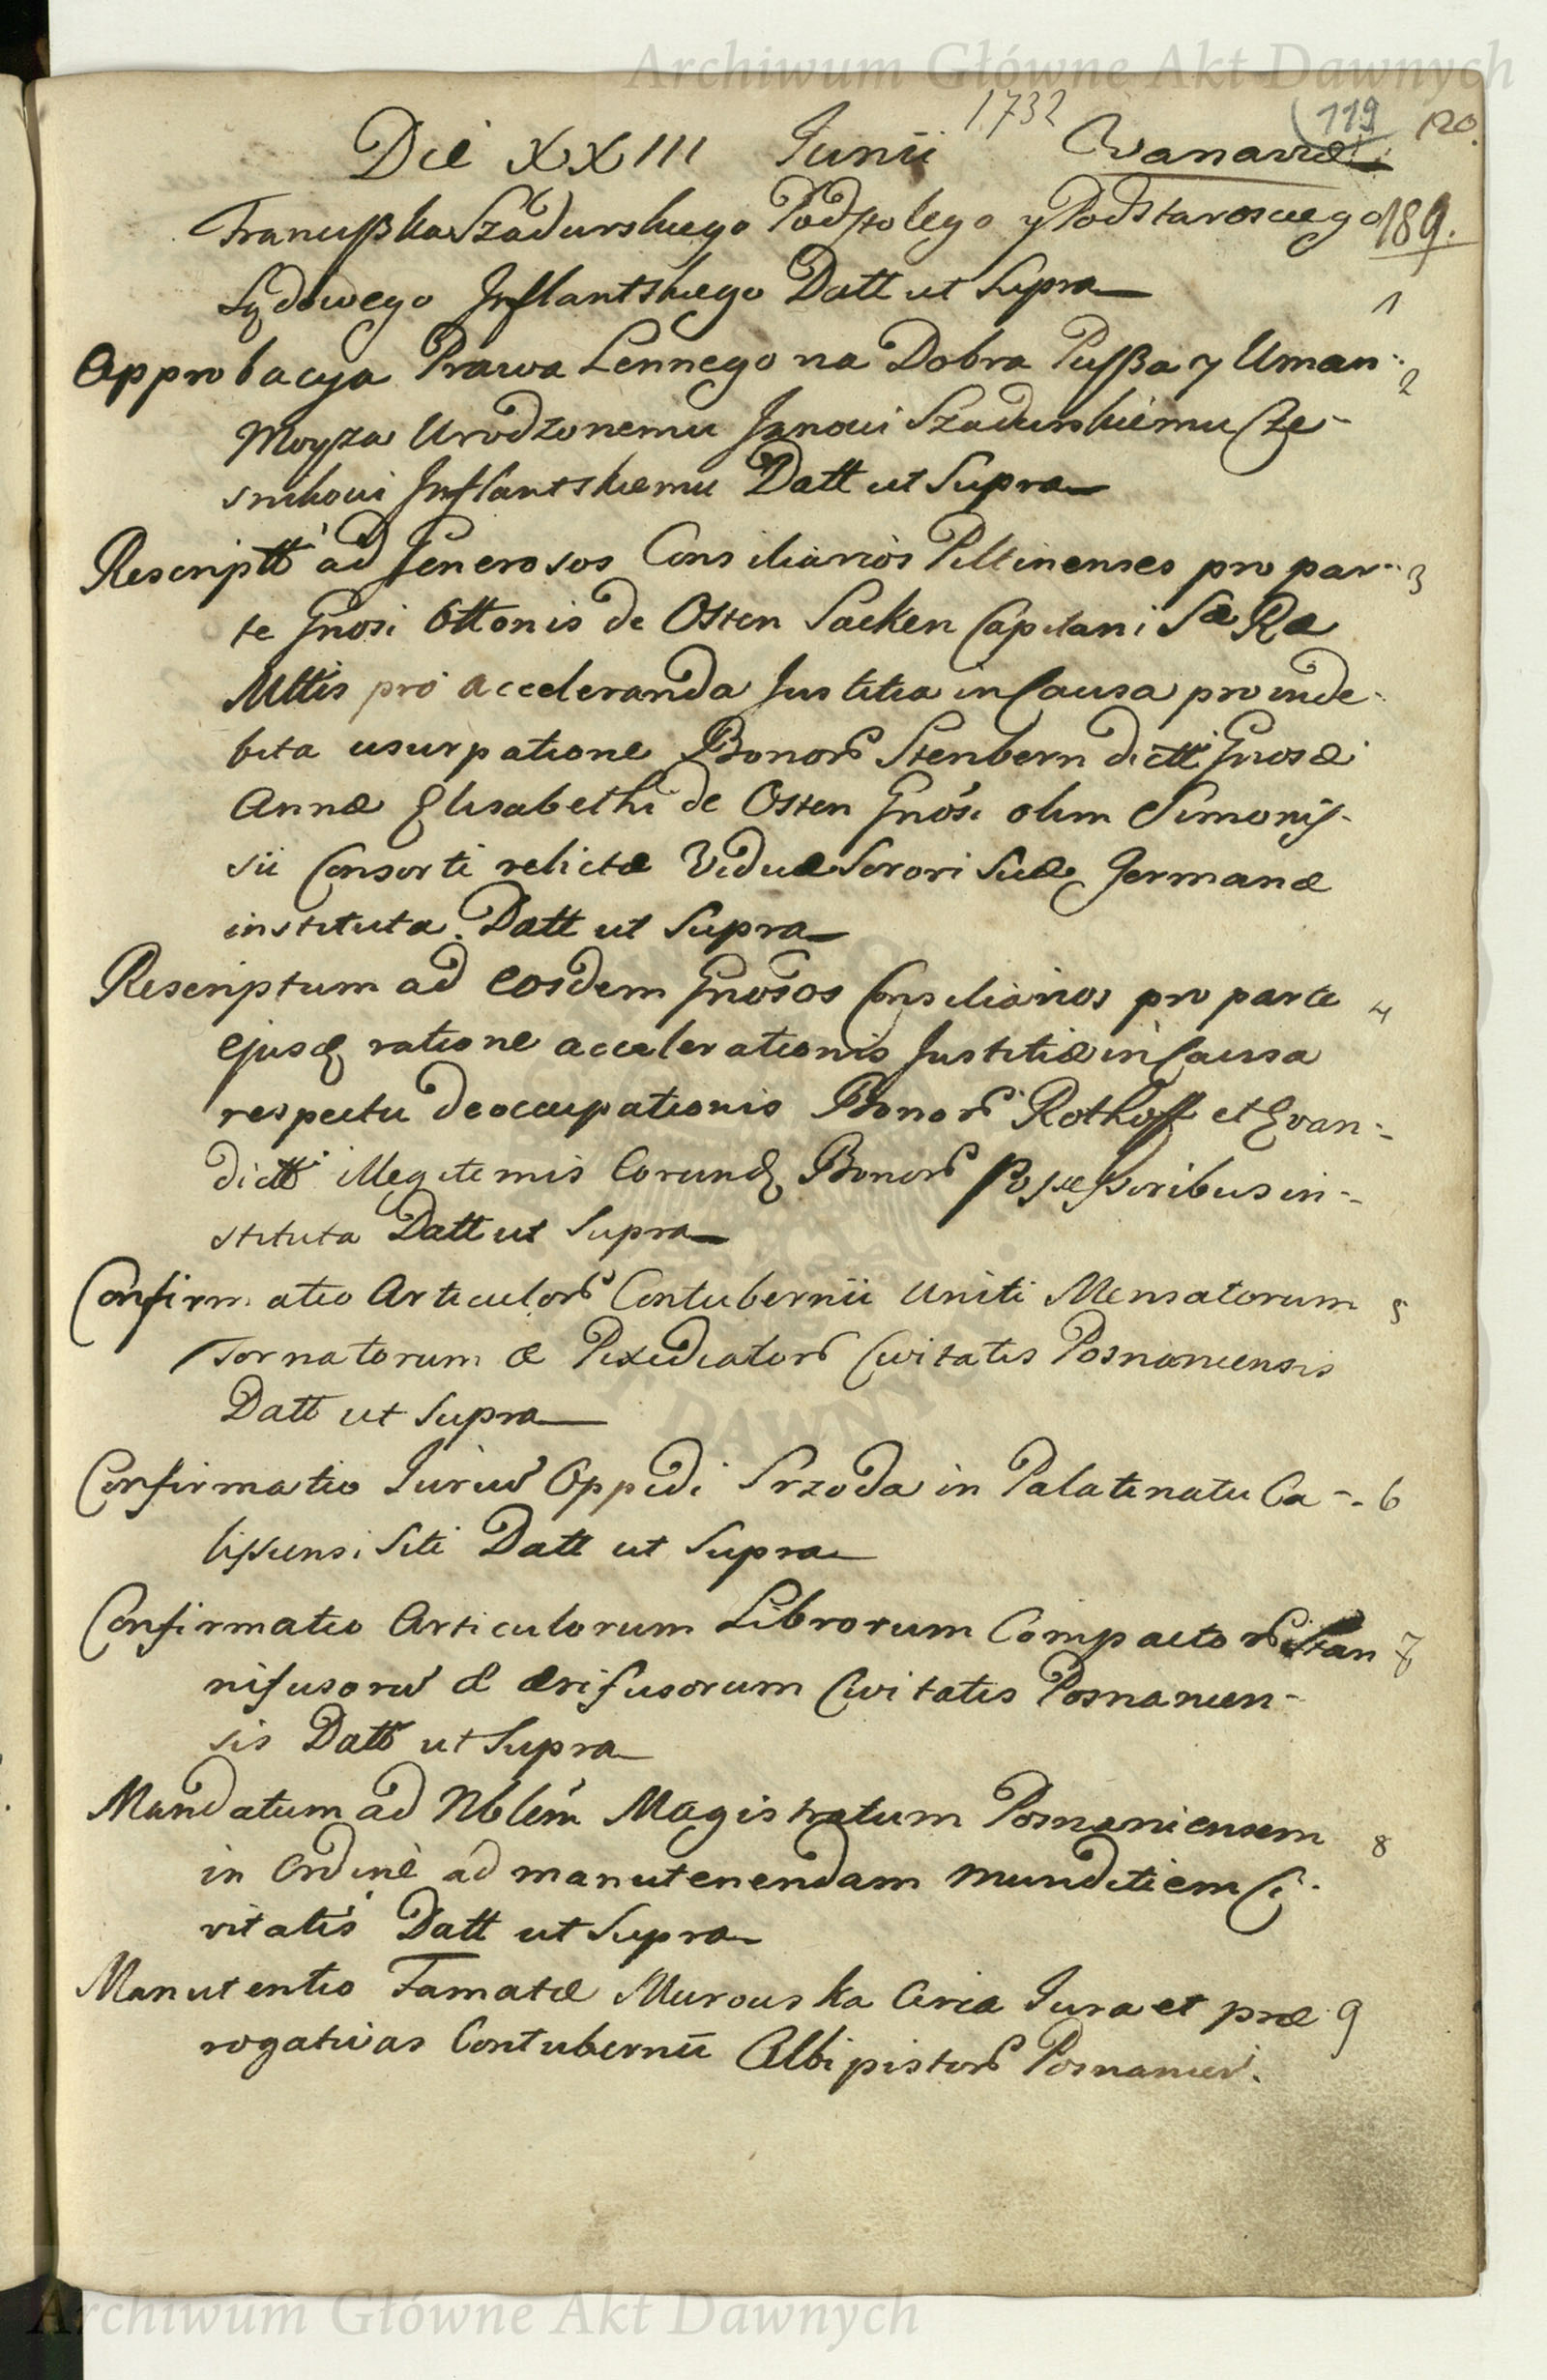 Archiwum Główne Akt Dawnych
1732 (119 120.
Die XXIII Junii Warsaviæ
Franciszka Szadurskiego Podstolego y Podstarosciego 189.
Sądowego Inflantskiego Datt ut Supra 1
Approbacya Prawa Lennego na Dobra Pussa y Uman- 2
Moyza Urodzonemu Janowi Szadurskiemu Cze-
snikowi Inflantskiemu Datt ut Supra
Rescriptt ad Generosos Consiliarios Piltinenses pro par- 3
te Gnosi Ottonis de Osten Sacken Capitani Sæ Ræ
Mttis pro acceleranda Justitia in Causa pro inde-
bita usurpatione Bonor Stenbern dictt Gnosæ
Annæ Elisabethi de Osten Gnosi olim Simonis-
sii Consorti relictæ Viduæ Sorori Suæ Germanæ
instituta. Datt ut Supra
Rescriptum ad eosdem Gnosos Consiliarios pro parte 4
ejusd ratione accelerationis Justitiæ in Causa
respectu deoccupationis Bonor Rothoff et Evan-
dictt illegitimis eorund Bonor Possessoribus in-
stituta Datt ut Supra
Confirmatio Articulor Contubernii Uniti Mensatorum 5
Tornatorum & Pixidiator Civitatis Posnaniensis
Datt ut Supra
Confirmatio Juriu Oppidi Srzoda in Palatinatu Ca- 6
lissiensi Siti Datt ut Supra
Confirmatio Articulorum Librorum Compactor Stan 7
nifusoru & ærifusorum Civitatis Posnanien-
sis Datt ut Supra
Mandatum ad Nblem Magistratum Posnaniensem 8
in Ordine ad manutenendam munditiem Ci-
vitatis Datt ut Supra
Manutentio Famatæ Murowska circa Jura et præ 9
rogativas Contubernii Albipistor Posnanien.
Archiwum Główne Akt Dawnych